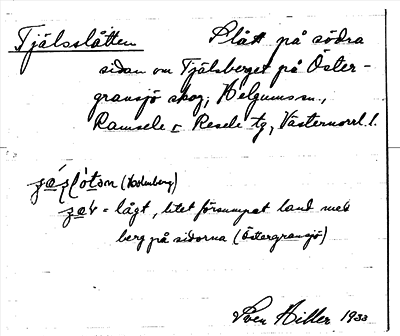 Tjälsslåtten Slått på södra
sidan om Tjälsberget på Öster-
gransjö skog, Helgums sn.,
Ramsele o. Resele tg, Västernorrl. l.
(Holmberg)
= lågt, litet försumpat land med
berg på sidorna (Östergransjö)
Sven Hiller 1933